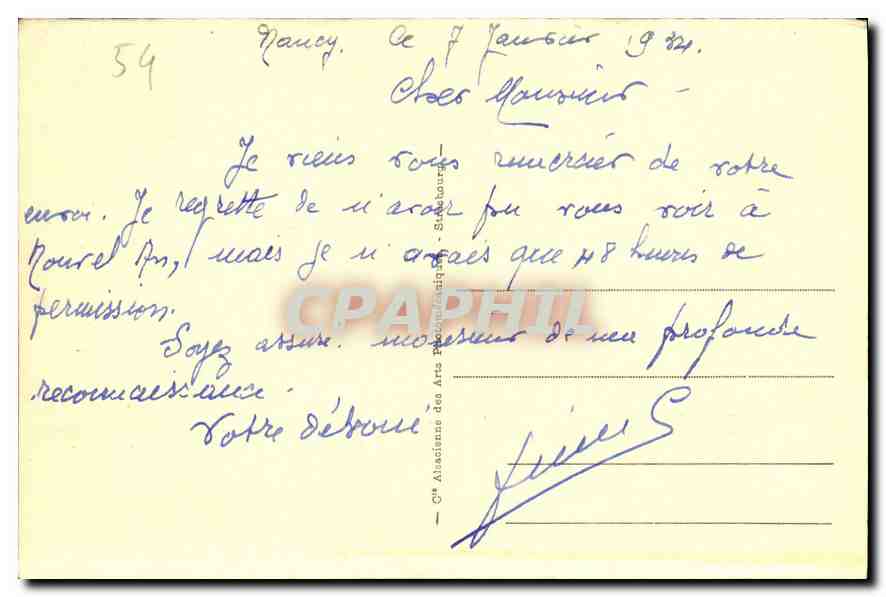 54
Nancy. Le 7 Janvier 1934.
Cher Monsieur -
Je viens vous remercier de votre
envoi. Je regrette de n'avoir pu vous voir à
Nouvel An, mais je n'avais que 48 heures de
permission.
Soyez assuré monsieur de ma profonde
reconnaissance.
Votre dévoué
— Cie Alsacienne des Arts Photomécaniques - Strasbourg —
CPAPHIL